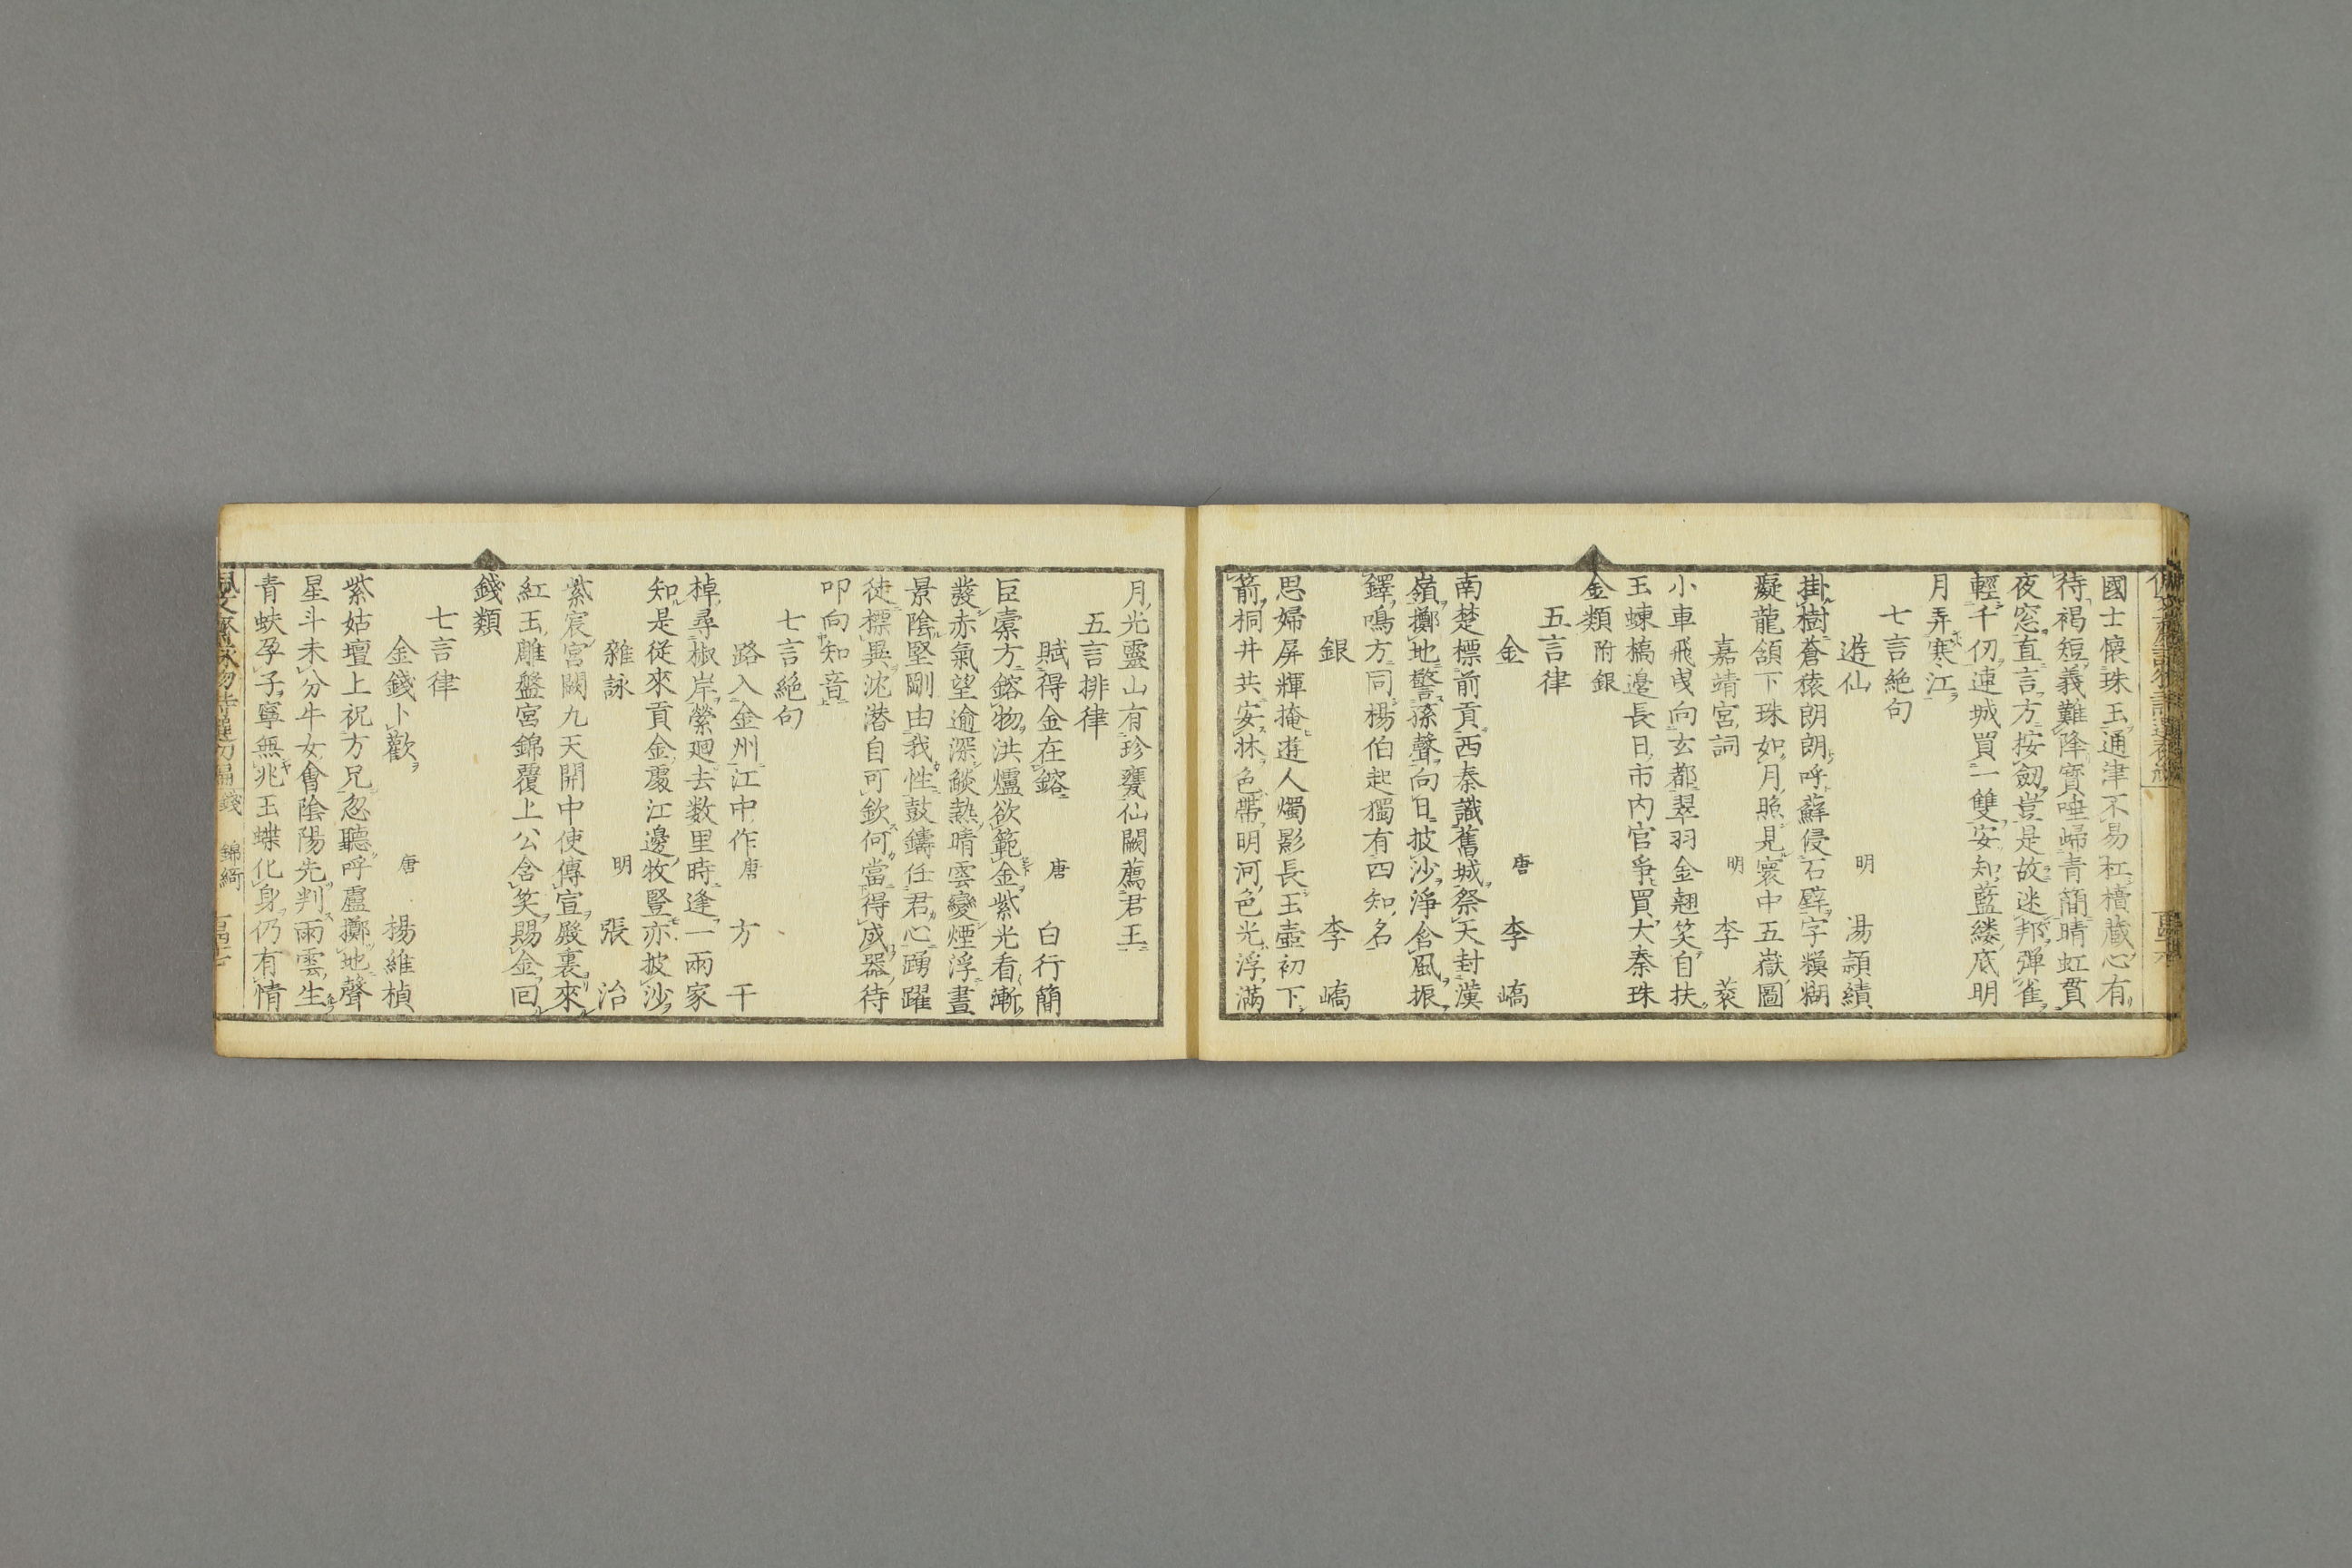 國士懷珠玉通津不易杠櫝藏心有
待褐短義難降寶唾歸青簡晴虹貫
夜窓直言方按劔豈是故迷邦彈雀
輕千仞連城買一雙安知藍縷底明
月弄寒江
七言絶句
遊仙 明 湯顯績
掛樹蒼猿朗朗呼蘚侵石壁字模糊
癡龍頷下珠如月照見寰中五嶽圖
嘉靖宮詞 明 李蓘
小車飛曵向玄都翠羽金翹笑自扶
玉蝀橋邊長日市内官爭買大秦珠
金類附銀
五言律
金 唐 李嶠
南楚標前貢西秦識舊城祭天封漢
嶺擲地警孫聲向日披沙淨含風振
鐸鳴方同楊伯起獨有四知名
銀 李嶠
思婦屏輝掩遊人燭影長玉壺初下
箭桐井共安牀色帶明河色光浮滿
月光靈山有珍甕仙闕薦君王
五言排律
賦得金在鎔 唐 白行簡
巨橐方鎔物洪爐欲範金紫光看漸
發赤氣望逾深燄熱晴雲變煙浮晝
景陰堅剛由我性鼓鑄任君心踴躍
徒標異沈潜自可欽何當得成器待
叩向知音
七言絶句
路入金州江中作 唐 方干
棹尋椒岸縈廻去数里時逢一兩家
知是從來貢金處江邊牧豎亦披沙
雜詠 明 張治
紫宸宮闕九天開中使傳宣殿裏來
紅玉雕盤宮錦覆上公含笑賜金回
錢類
七言律
金錢卜歡 唐 楊維楨
紫姑壇上祝方兄忽聽呼盧擲地聲
星斗未分牛女會陰陽先判雨雲生
青蚨孕子寧無兆玉蝶化身仍有情
佩文齋詠物詩選初編 錢 錦綺